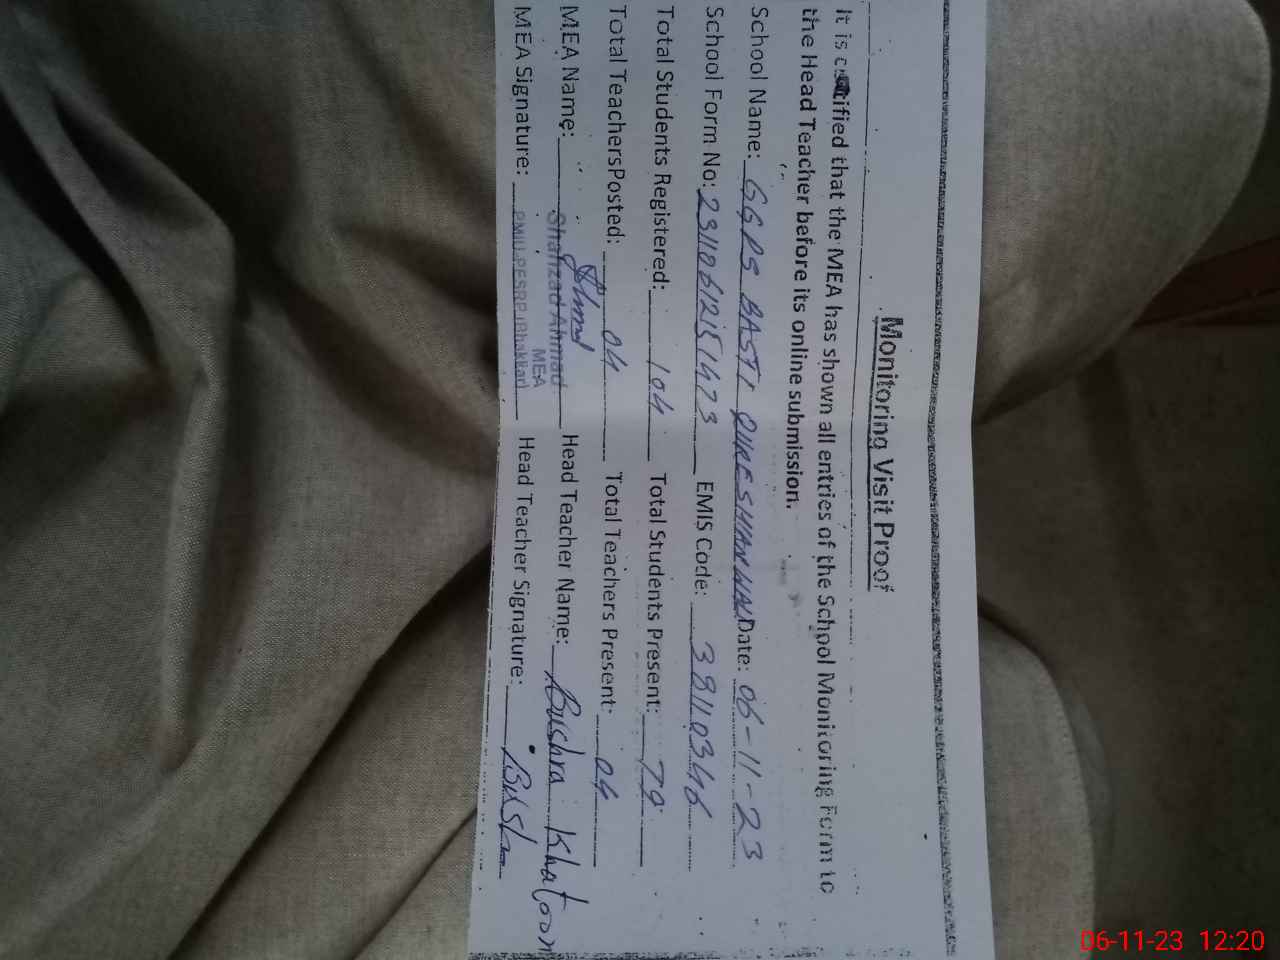 Monitoring Visit Proof
It is certified that the MEA has shown all entries of the School Monitoring Form to
the Head Teacher before its online submission.
School Name: GGPS BASTI QURESHIANWALI Date: 06-11-23
School Form No: 2311061251473 EMIS Code: 38110346
Total Students Registered: 104 Total Students Present: 79
Total TeachersPosted: 04 Total Teachers Present: 04
MEA Name: Shahzad Ahmad Head Teacher Name: Bushra Khatoon
MEA
MEA Signature: PMIU-PESRP (Bhakkar) Head Teacher Signature: Bushra
06-11-23 12:20